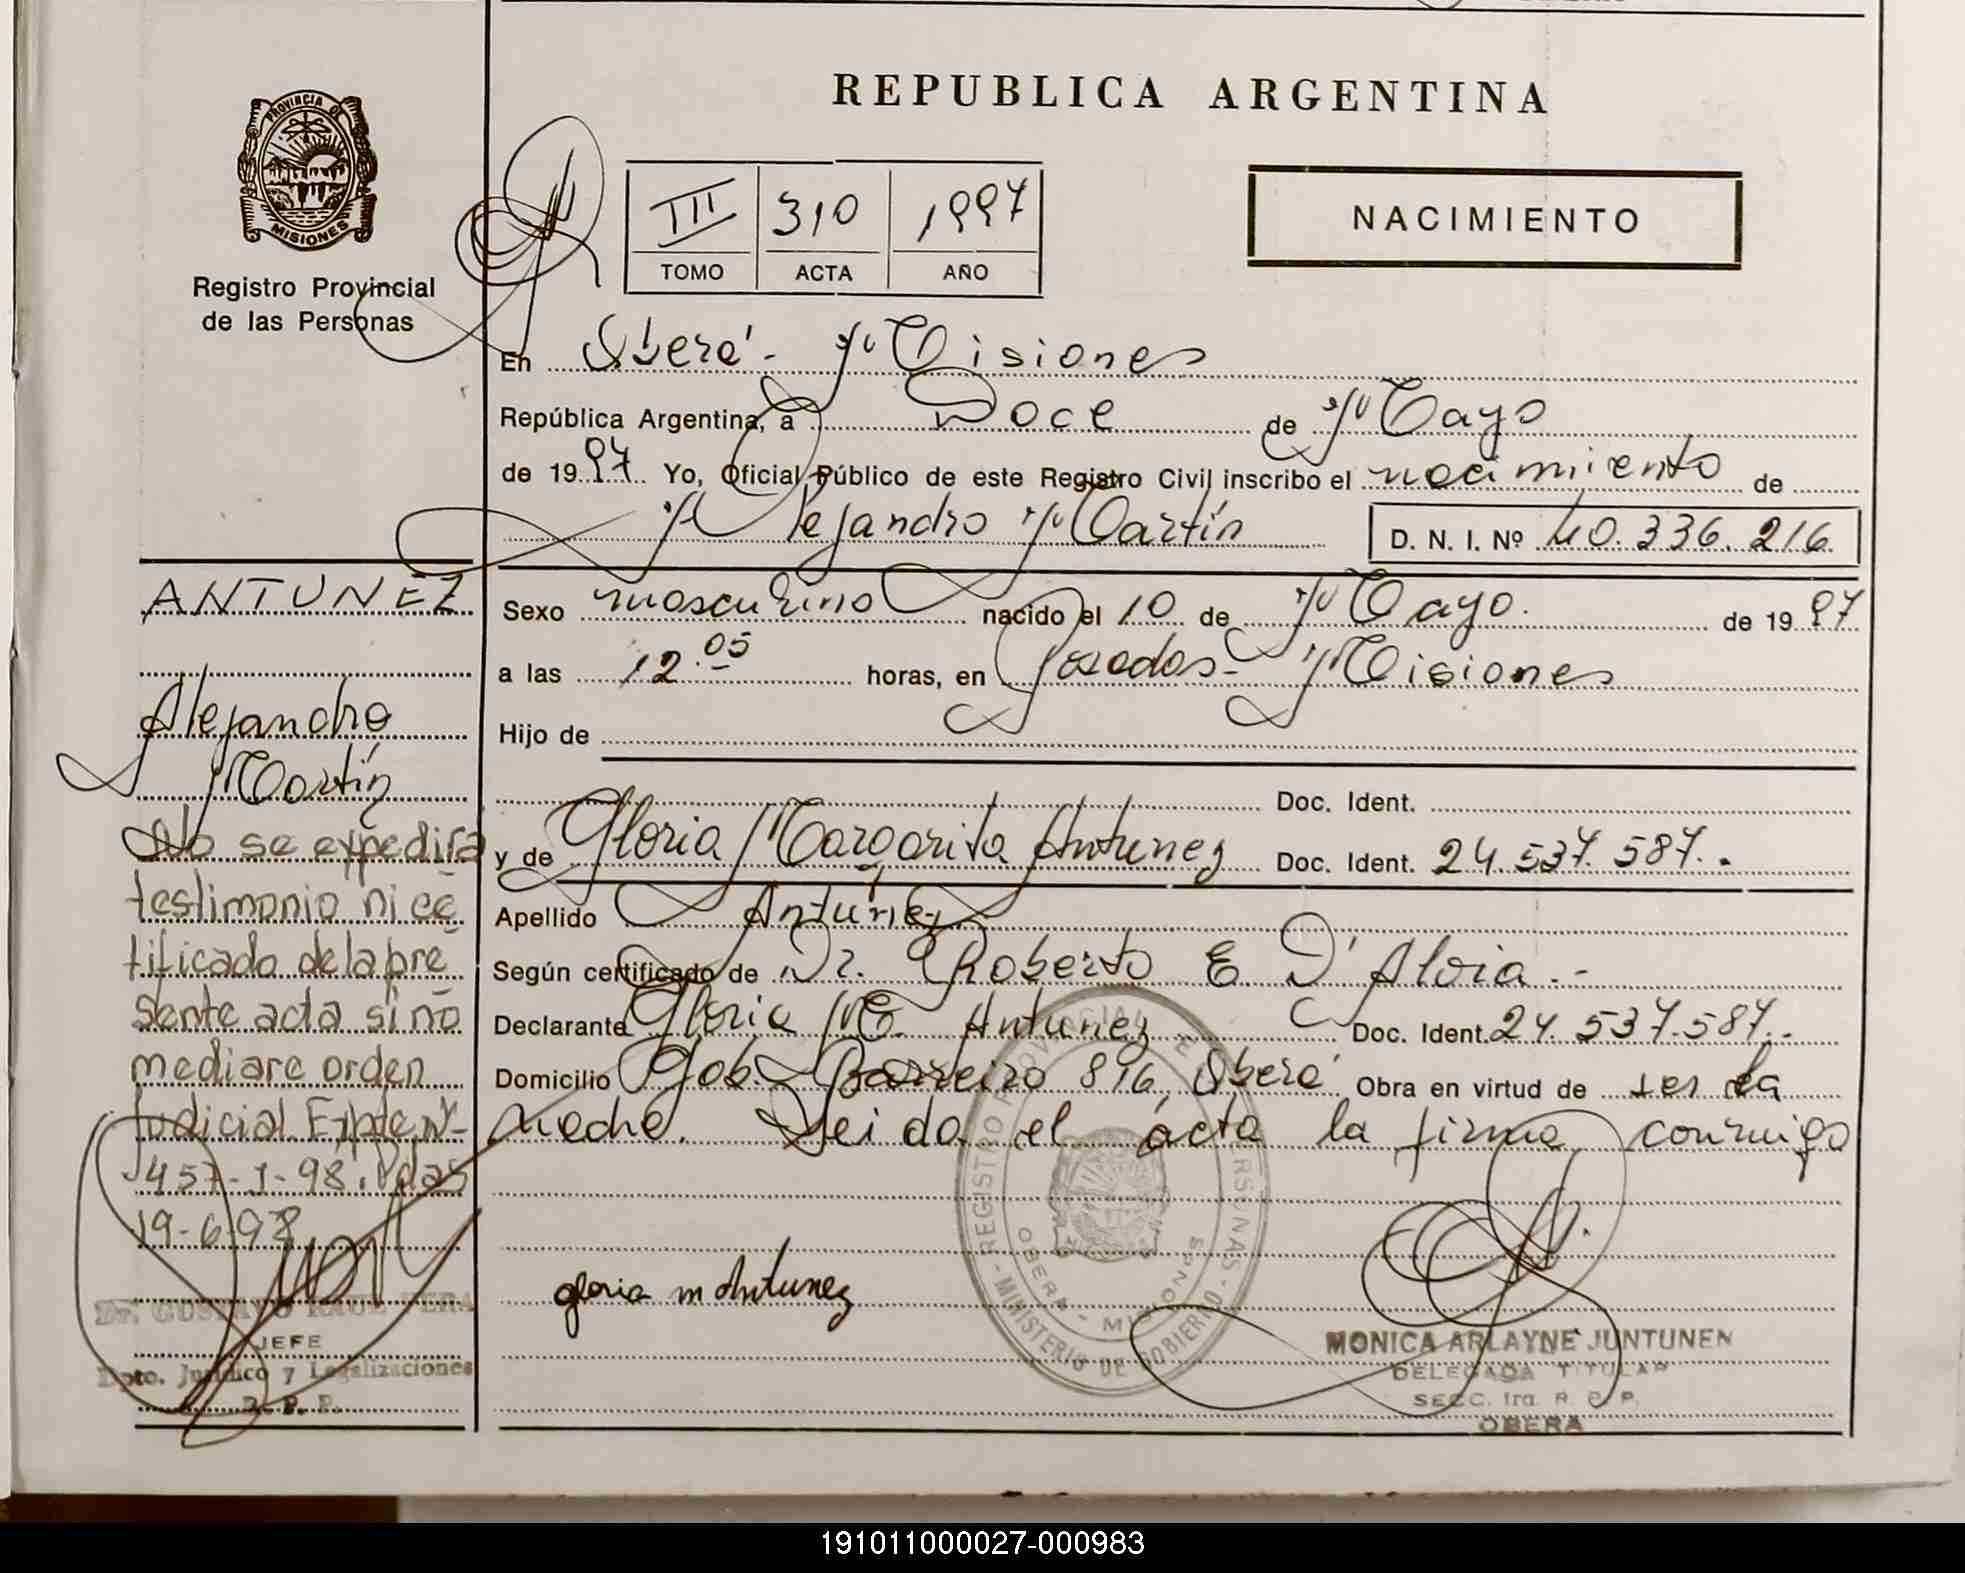 REPUBLICA ARGENTINA
PROVINCIA DE
MISIONES
Registro Provincial
de las Personas
III 310 1997
TOMO ACTA AÑO
NACIMIENTO
En Oberá - Misiones
República Argentina, a Doce de Mayo
de 1997. Yo, Oficial Público de este Registro Civil inscribo el nacimiento de
Alejandro Martín D. N. I. Nº 40.336.216
Sexo masculino nacido el 10 de Mayo. de 1997
a las 12.05 horas, en Posadas - Misiones
Hijo de
Doc. Ident.
y de Gloria Margarita Antunez Doc. Ident. 24.537.587.
Apellido Antúnez
Según certificado de Dr. Roberto E D'Aloia.-
Declarante Gloria M. Antunez Doc. Ident. 24.537.587.
Domicilio Gob. Barreiro 816, Oberá Obra en virtud de ser la
madre. Leida el acta la firma conmigo
gloria m Antunez
REGISTRO PROVINCIAL DE PERSONAS - MINISTERIO DE GOBIERNO -
OBERA - MISIONES
MONICA ARLAYNE JUNTUNEN
DELEGADA TITULAR
SECC. 1ra. R. P. P.
OBERA
ANTUNEZ
Alejandro
Martín
No se expedira
testimonio ni ce
tificado de la pre
sente acta si no
mediare orden
Judicial Expte. Nº
457-J-98. Pdas
19-6-98
Dr. GUSTAVO RAUL VERA
JEFE
Dpto. Jurídico y Legalizaciones
R. P. P.
191011000027-000983